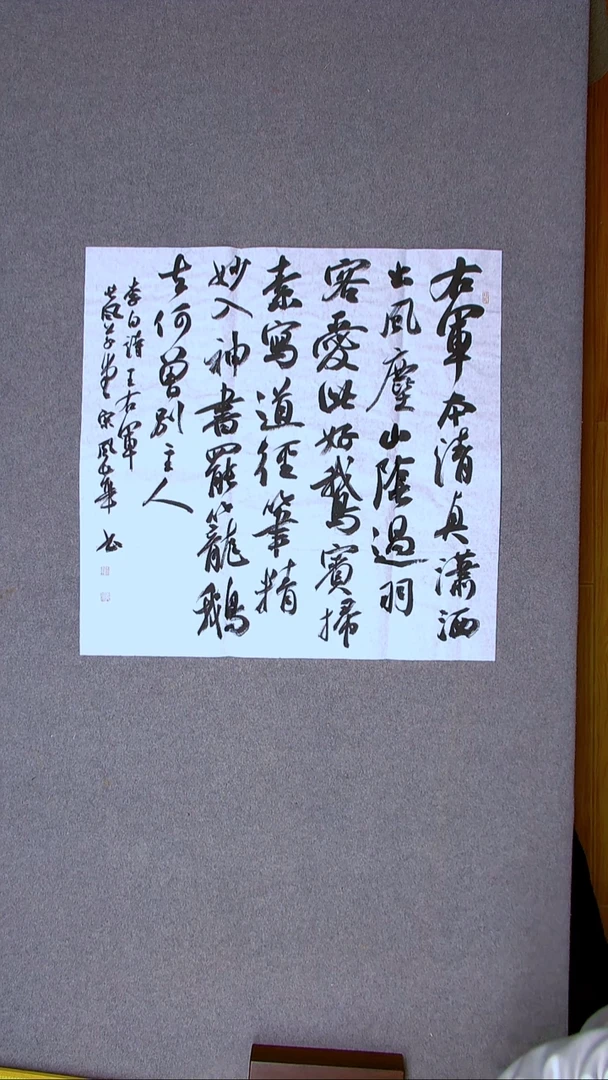 右軍本清真瀟洒
出風塵山陰過羽
客愛此好鵝賓掃
素寫道經筆精
妙入神書罷籠鵝
去何曾別主人
李白詩王右軍
草堂宋風華书